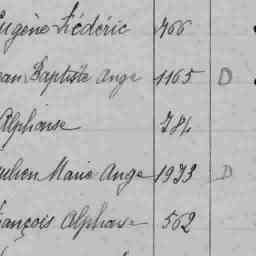 Eugène Frédéric 766
ean Baptiste Ange 1165 D
Alphonse 784
ulien Marie Ange 1933 D
rançois Alphonse 562